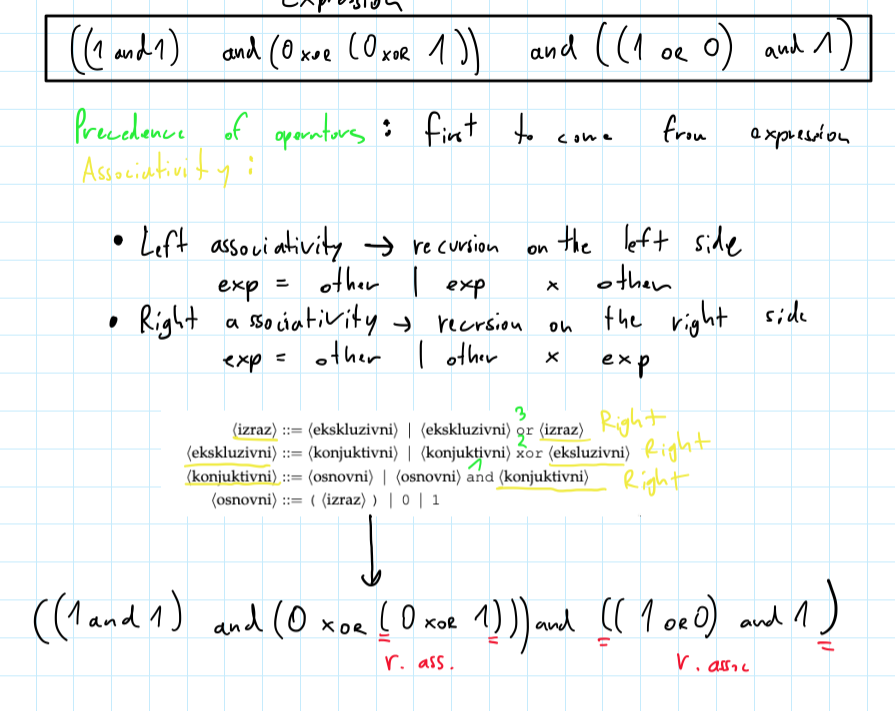 Expression
((1 and 1) and (0 xor (0 xOR 1)) and ((1 OR 0) and 1)
Precedence of operators : first to come from expression
Associativity :
• Left associativity → recursion on the left side
exp = other | exp x other
• Right associativity → recrsion on the right side
exp = other | other x exp
3
⟨izraz⟩ ::= ⟨ekskluzivni⟩ | ⟨ekskluzivni⟩ or ⟨izraz⟩ Right
2
⟨ekskluzivni⟩ ::= ⟨konjuktivni⟩ | ⟨konjuktivni⟩ xor ⟨eksluzivni⟩ Right
1
⟨konjuktivni⟩ ::= ⟨osnovni⟩ | ⟨osnovni⟩ and ⟨konjuktivni⟩ Right
⟨osnovni⟩ ::= ( ⟨izraz⟩ ) | 0 | 1
((1 and 1) and (0 xOR (0 xOR 1))) and ((1 OR 0) and 1)
r. ass. r. assc